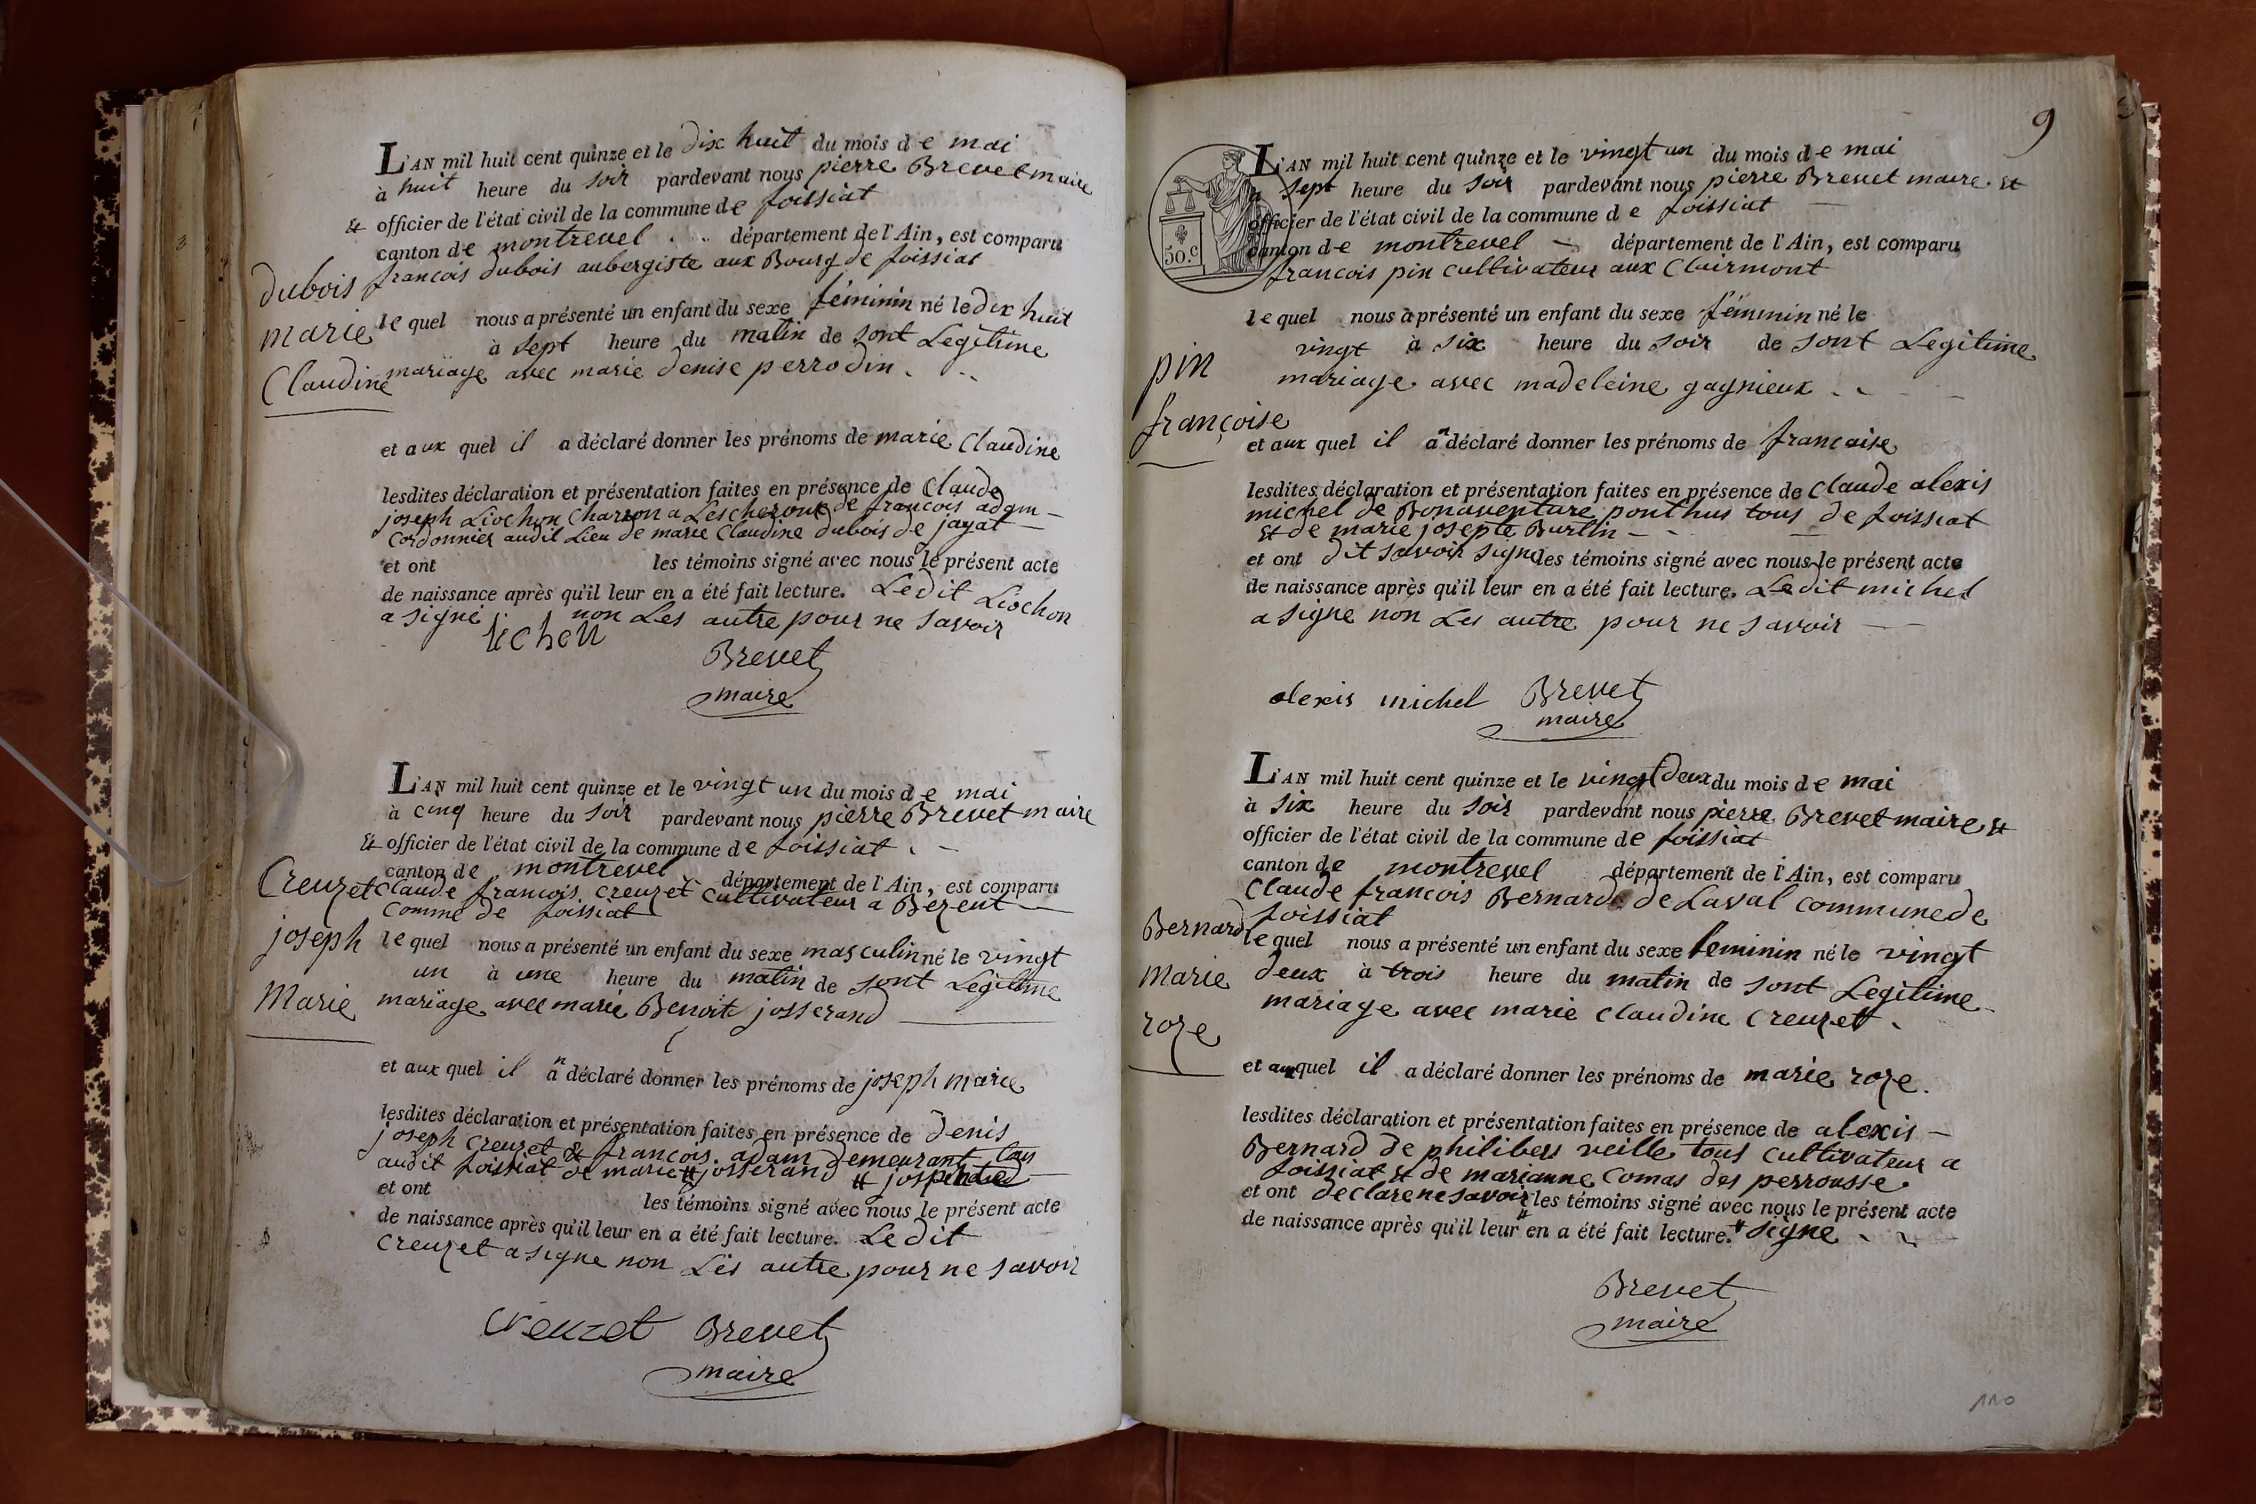 L'AN mil huit cent quinze et le dix huit du mois de mai
à huit heure du soir pardevant nous pierre Brevet maire
& officier de l'état civil de la commune de foissiat
canton de montrevel département de l'Ain, est comparu
francois dubois aubergiste aux Bourg de foissiat
dubois
marie
Claudine
le quel nous a présenté un enfant du sexe féminin né le dix huit
à sept heure du matin de sont Legitime
mariage avec marie denise perrodin
et aux quel il a déclaré donner les prénoms de marie Claudine
lesdites déclaration et présentation faites en présence de Claude
joseph Liochon Charron a Lescheroux de francois adam
Cordonnier audit Lieu de marie Claudine dubois de jayat
et ont les témoins signé avec nous le présent acte
de naissance après qu'il leur en a été fait lecture. Ledit Liochon
a signé non Les autre pour ne savoir
Brevet
maire
L'AN mil huit cent quinze et le vingt un du mois de mai
à cinq heure du soir pardevant nous pierre Brevet maire
& officier de l'état civil de la commune de foissiat
canton de montrevel département de l'Ain, est comparu
Claude francois creuzet cultivateur a Bezent
comme de foissiat
Creuzet
joseph
Marie
le quel nous a présenté un enfant du sexe masculin né le vingt
un à une heure du matin de sont Legitime
mariage avec marie Benoit josserand
et aux quel il an déclaré donner les prénoms de joseph marie
lesdites déclaration et présentation faites en présence de denis
joseph creuzet & francois adam demeurant
audit foissiat de marie josserand
et ont les témoins signé avec nous le présent acte
de naissance après qu'il leur en a été fait lecture. Ledit
creuzet a signe non Les autre pour ne savoir
creuzet Brevet
maire
9
L'AN mil huit cent quinze et le vingt un du mois de mai
à sept heure du soir pardevant nous pierre Brevet maire &
officier de l'état civil de la commune de foissiat
canton de montrevel département de l'Ain, est comparu
50.c
francois pin cultivateur aux Clairmont
le quel nous a présenté un enfant du sexe féminin né le
vingt à six heure du soir de sont Legitime
mariage avec madeleine gagnieux
pin
françoise
et aux quel il an déclaré donner les prénoms de francoise
lesdites déclaration et présentation faites en présence de Claude alexis
michel de Bonaventure ponthus tous de foissiat
& de marie josepte Burtin
et ont dit savoir signe les témoins signé avec nous le présent acte
de naissance après qu'il leur en a été fait lecture. Ledit michel
a signe non Les autre pour ne savoir
alexis michel Brevet
maire
L'AN mil huit cent quinze et le vingt deux du mois de mai
à six heure du soir pardevant nous pierre Brevet maire &
officier de l'état civil de la commune de foissiat
canton de montrevel département de l'Ain, est comparu
Claude francois Bernard de Laval commune de
foissiat
Bernard
Marie
roze
le quel nous a présenté un enfant du sexe feminin né le vingt
deux à trois heure du matin de sont Legitime
mariage avec marie claudine creuzet
et aux quel il a déclaré donner les prénoms de marie roze
lesdites déclaration et présentation faites en présence de alexis
Bernard de philibert veille tous cultivateur a
foissiat & de marianne comas des perrousse
et ont declare ne savoir les témoins signé avec nous le présent acte
de naissance après qu'il leur en a été fait lecture. signe
Brevet
maire
110